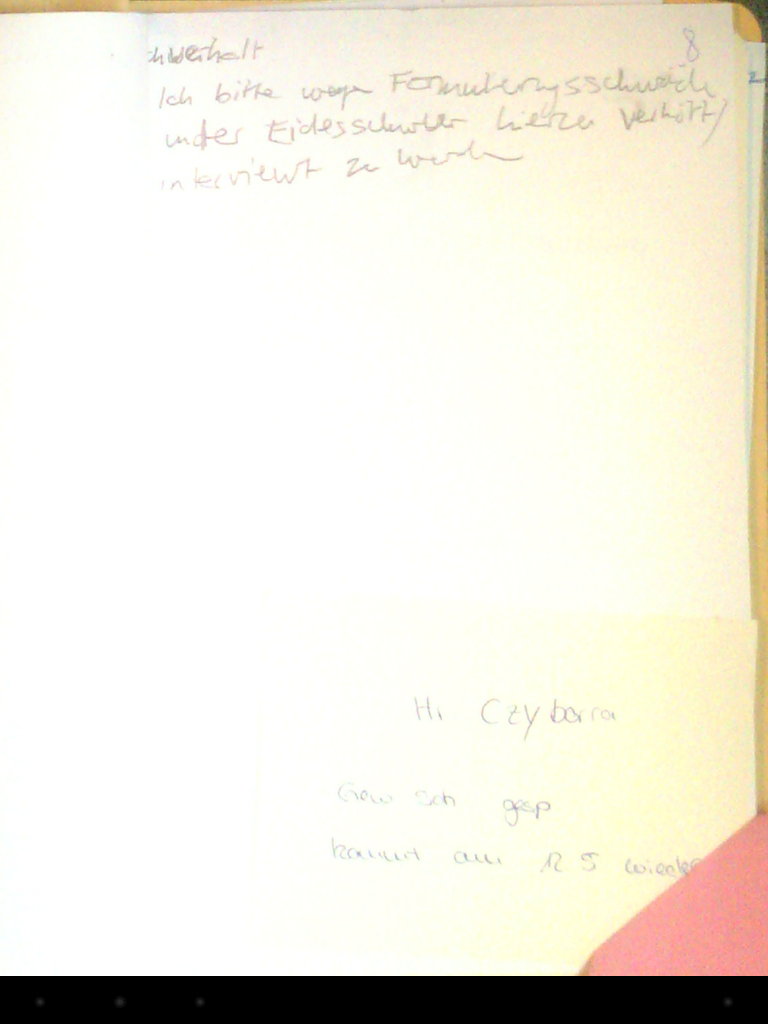 8
chverhalt
Ich bitte wegen Formulierungsschwäche
unter Eidesschwur hierzu verhört/
interviewt zu werden
Hr Czyborra
Gew Sch gesp
kommt am 12 5 wieder